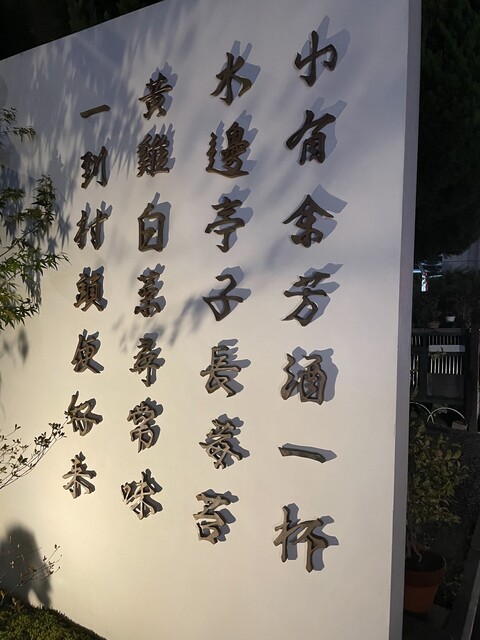 小有余芳酒一杯
水邊亭子長莓苔
黃雞白菜尋常味
一到村頭便好来